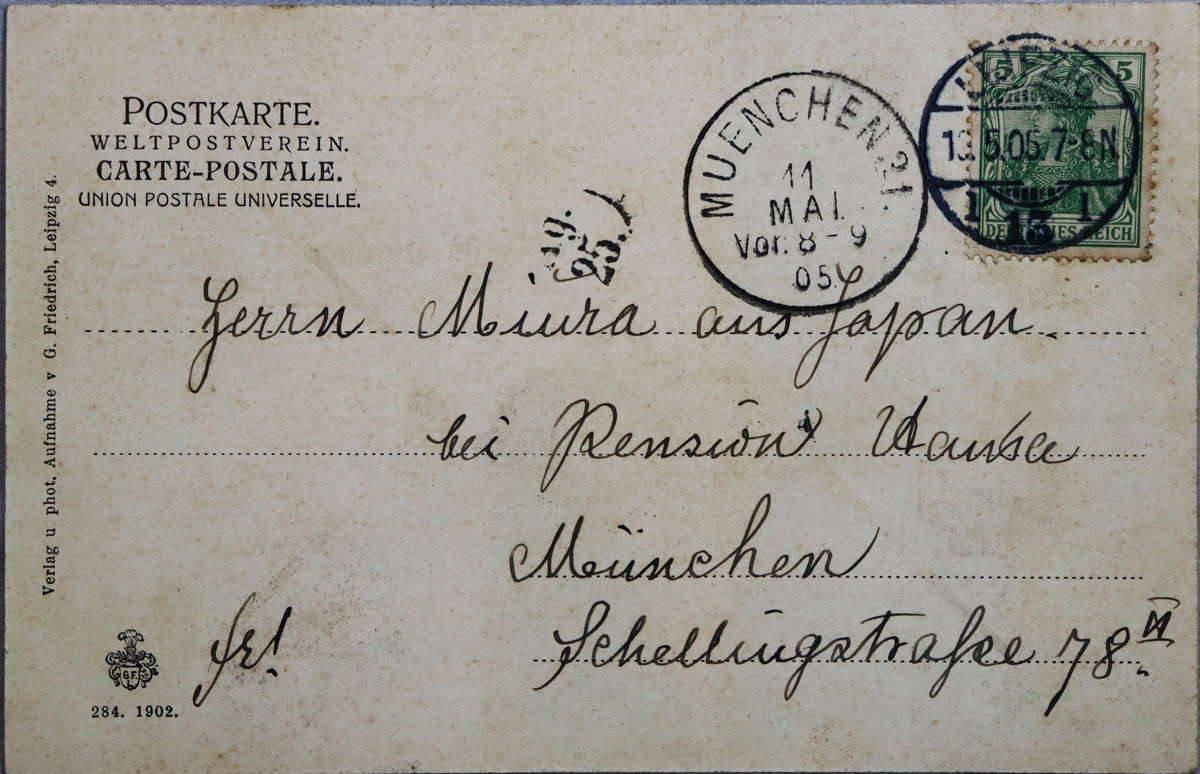 POSTKARTE.
WELTPOSTVEREIN.
CARTE-POSTALE.
UNION POSTALE UNIVERSELLE.
Verlag u phot. Aufnahme v G. Friedrich, Leipzig 4.
MUENCHEN
11
MAI.
Vor. 8-9
05.
LEIPZIG
5.05 7-8N
13
1.
5 5
DEUTSCHES REICH
25.
Herrn Miura aus Japan.
bei Pension Hansa
München
Schellingstraße 78 II
fr!
G.F.
L.
284. 1902.